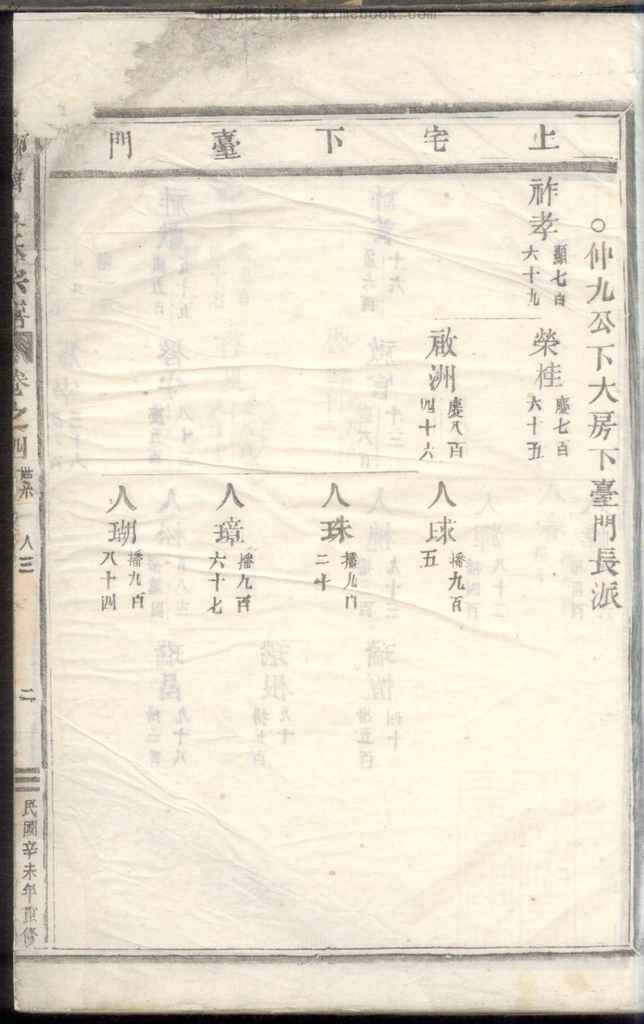 时光图书馆 atimebook.com
上宅下臺門
○仲九公下大房下臺門長派
祚孝
顯七百
六十九
榮桂
慶七百
六十五
啟洲
慶八百
四十六
人球
播九百
五
人珠
播九百
二十
人璋
播九百
六十七
人瑚
播九百
八十四
卷之四
世系
人三
二
民國辛未年重修